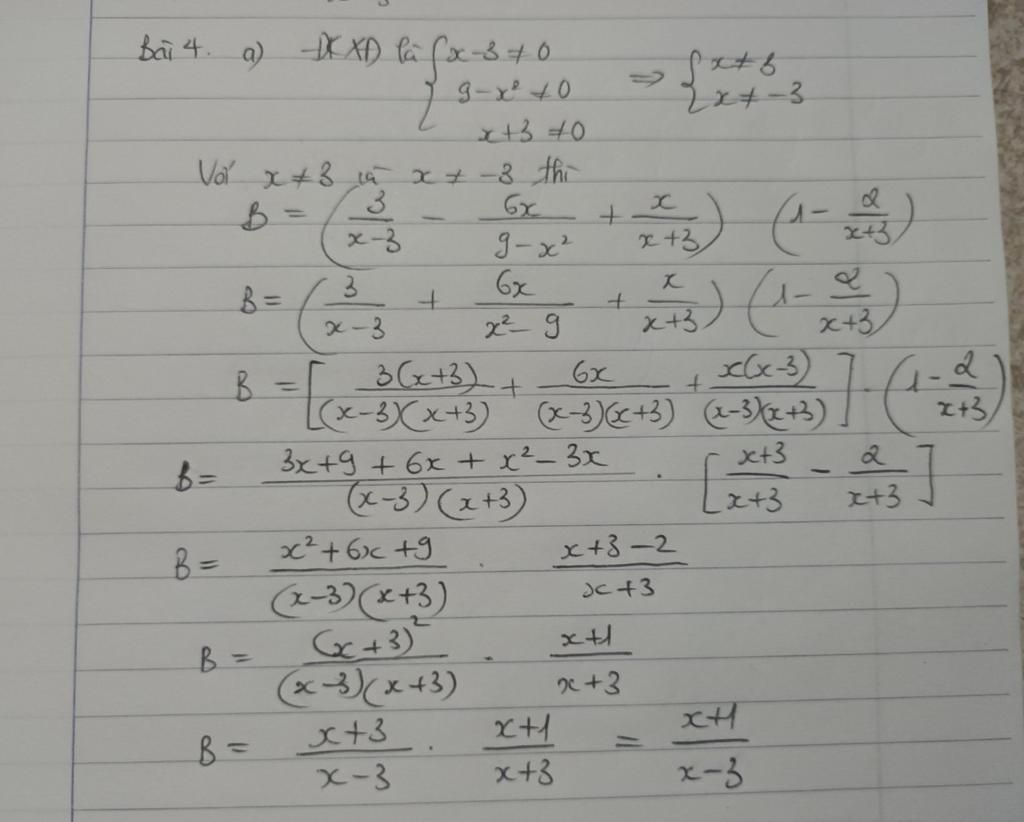 Bài 4. a) ĐKXĐ là { x-3 ≠ 0
9-x² ≠ 0 => { x ≠ 3
x+3 ≠ 0 x ≠ -3
Với x ≠ 3 và x ≠ -3 thì
B = (3/(x-3) - 6x/(9-x²) + x/(x+3)) (1 - 2/(x+3))
B = (3/(x-3) + 6x/(x²-9) + x/(x+3)) (1 - 2/(x+3))
B = [3(x+3)/((x-3)(x+3)) + 6x/((x-3)(x+3)) + x(x-3)/((x-3)(x+3))] · (1 - 2/(x+3))
B = (3x+9+6x+x²-3x)/((x-3)(x+3)) · [(x+3)/(x+3) - 2/(x+3)]
B = (x²+6x+9)/((x-3)(x+3)) · (x+3-2)/(x+3)
B = (x+3)²/((x-3)(x+3)) · (x+1)/(x+3)
B = (x+3)/(x-3) · (x+1)/(x+3) = (x+1)/(x-3)